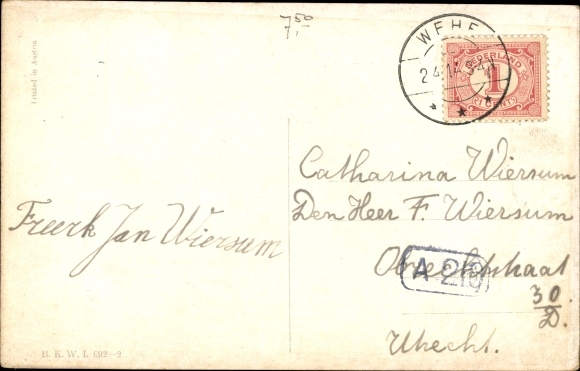 7,50
7,-
WEHE
24.1.14.8-9V
NEDERLAND
1
1 CENT
Printed in Austria
Catharina Wiersum
Den Heer F. Wiersum
Freerk Jan Wiersum
Obrechtstraat
A 218
30
D.
Utrecht.
B. K. W. I. 692—2